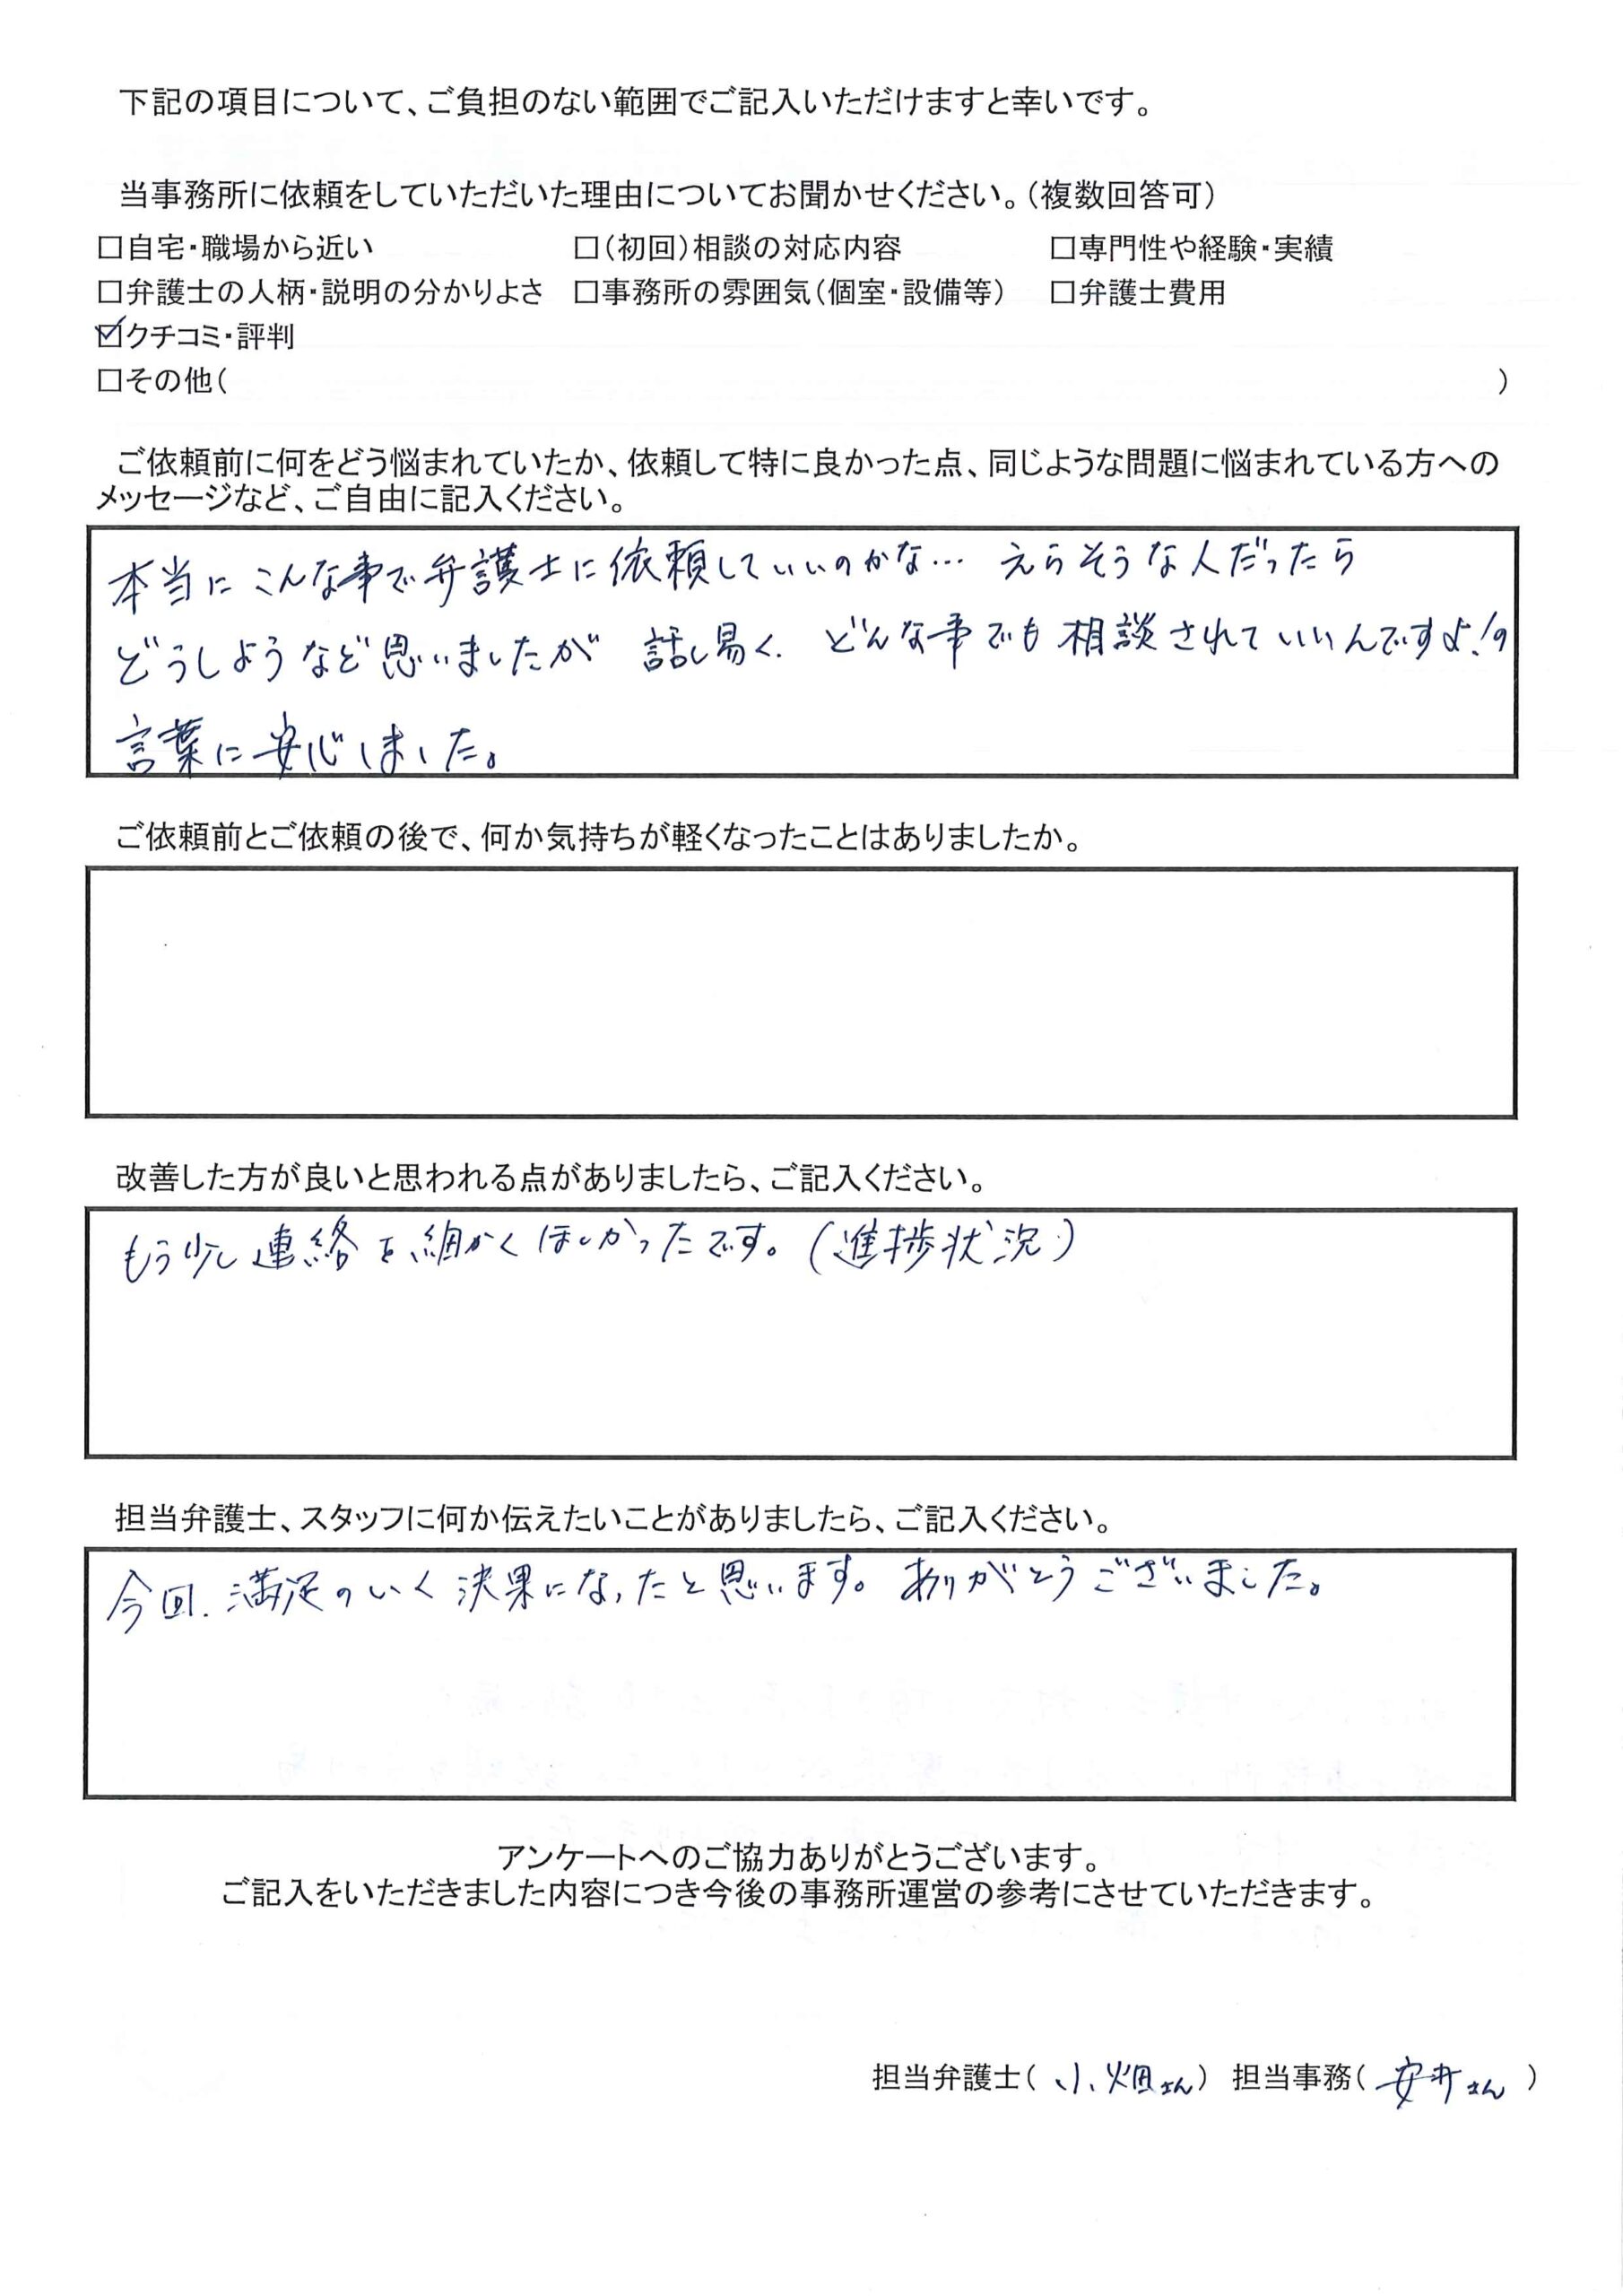 下記の項目について、ご負担のない範囲でご記入いただけますと幸いです。
当事務所に依頼をしていただいた理由についてお聞かせください。（複数回答可）
□自宅・職場から近い　□（初回）相談の対応内容　□専門性や経験・実績
□弁護士の人柄・説明の分かりよさ　□事務所の雰囲気（個室・設備等）　□弁護士費用
☑クチコミ・評判
□その他（　）
ご依頼前に何をどう悩まれていたか、依頼して特に良かった点、同じような問題に悩まれている方への
メッセージなど、ご自由に記入ください。
本当にこんな事で弁護士に依頼していいのかな… えらそうな人だったら
どうしようなど思いましたが 話し易く、どんな事でも相談されていいんですよ！の
言葉に安心しました。
ご依頼前とご依頼の後で、何か気持ちが軽くなったことはありましたか。
改善した方が良いと思われる点がありましたら、ご記入ください。
もう少し連絡を細かくほしかったです。（進捗状況）
担当弁護士、スタッフに何か伝えたいことがありましたら、ご記入ください。
今回、満足のいく決果になったと思います。ありがとうございました。
アンケートへのご協力ありがとうございます。
ご記入をいただきました内容につき今後の事務所運営の参考にさせていただきます。
担当弁護士（小畑さん）担当事務（安井さん）